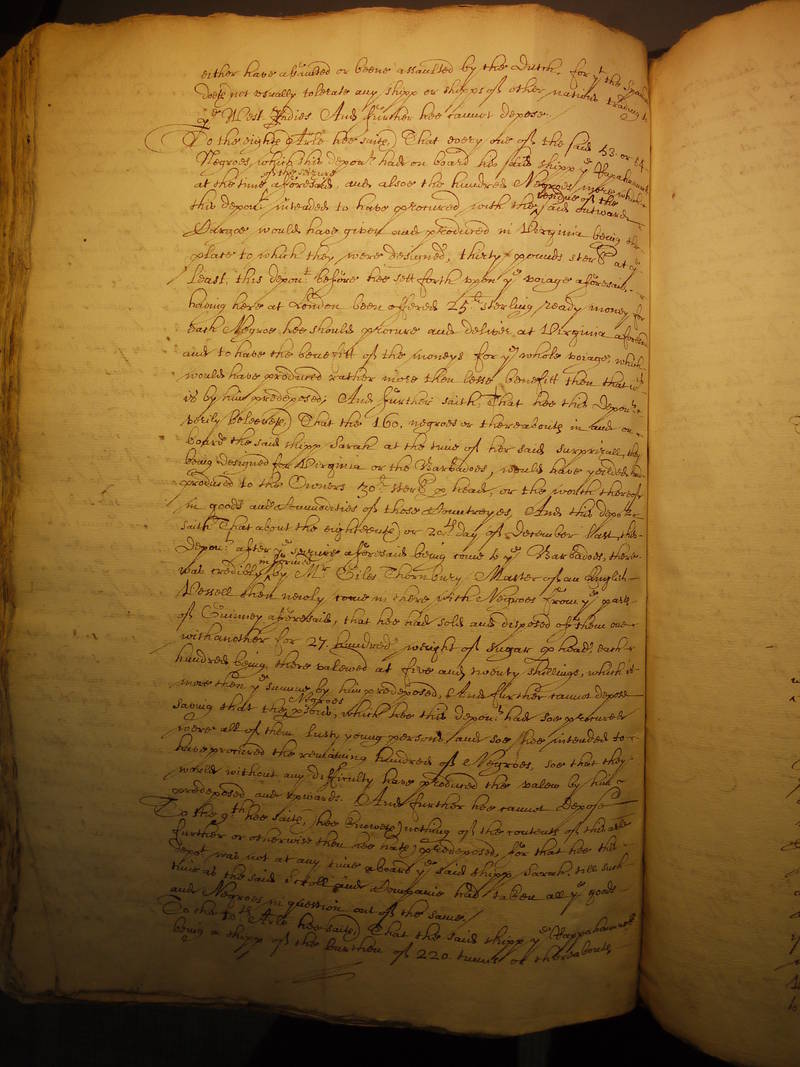 either have assaulted or beene assaulted by the Dutch, for yt the Spaniard
doeth not usually tolerate any shipp or shipps of other nations trading to
ye West Indies And further hee cannot depose.
To the eighth Arle hee saith, That every one of the said 53. or 54
Negroes, which this depont had on board his said shipp ye Rappahanock
at the time of the seizure aforesaid, and alsoe the hundred Negroes more which
this depont intended to have procured with the residue of the said outward
Cargoe would have given and produced in Virginia being the
place to which they were designed, thirty pounds sterlg at ye
least, this depont before hee sett forth upon ye voiage aforesaid,
having here at London been offered 25li sterling ready money for
each Negroe hee should procure and deliver at Virginia aforesaid
and to have the benefitt of the moneys for ye whole voiage, which
would have produced rather more then lesse benefitt then that wch
is by him predeposed, And further saith, That hee this Deponet
verily beleeveth, That the 160. negroes or thereabouts in and on
board the said shipp Sarah at the time of her said surprizall, they
being designed for Virginia or the Barbados, would have yeilded and
produced to the Owners 30li sterlg p head, or the worth thereof
in goods and Commodities of those Countreyes, And this deponet
saith That about the eighteenth or 20th day of December last this
Depont after ye seizure aforesaid being come to ye Barbados, there
was credibly informed by Mr Giles Thornbury Master of an English
Vessell then newly come in there with Negroes from ye parts
of Guinney aforesaid, that hee had sold and disposed of them one
with another for 27. hundred weight of sugar p head, each
hundred being there valewed at five and twenty shillings, which is
more then ye summe by him predeposed, And further cannot depose
saving that the Negroes, which hee this depont had soe procured
were all of them lusty young persons, and soe hee intended to
have procured the remaining hundred of Negroes, soe that they
would without any difficulty have produced the valew by him
predeposed and upwards. And further hee cannot depose
To the 9th hee saith, hee knoweth nothing of the contents of this arle
further or otherwise then hee hath predeposed, for that hee this
depot was not at any time aboard ye said shipp Sarah, till such
time as the said Scroll and Companie had taken all ye goods
and Negroes in question out of the same.
To the 10th Arle hee saith, That the said shipp ye Rappahanock
being a shipp of the burthen of 220 tunns or thereabouts